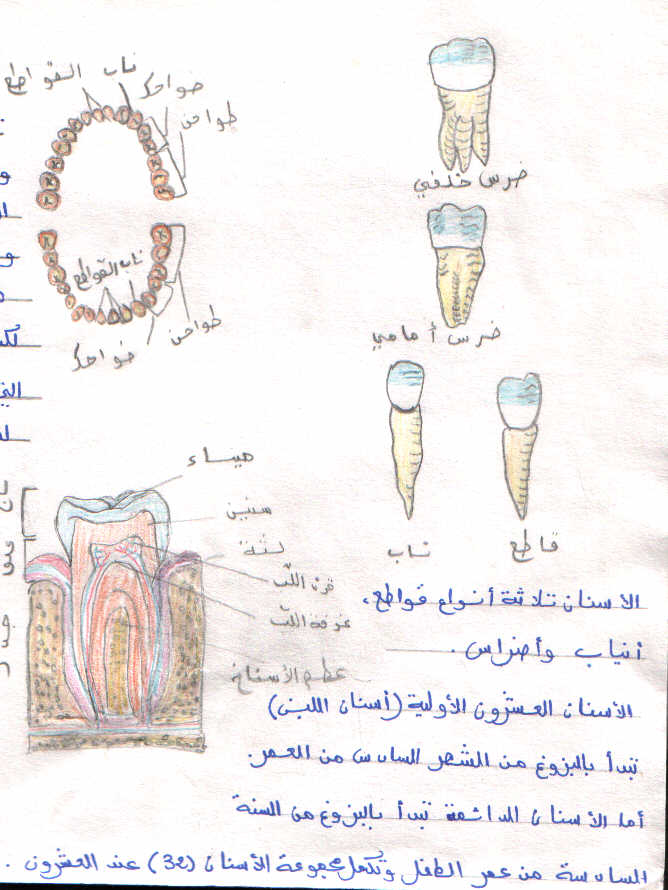 ناب القواطع
ضواحك
طواحن
ناب القواطع
طواحن
ضواحك
ضرس خلفي
ضرس أمامي
ناب
قاطع
ميناء
لثة
قرن اللب
غرفة اللب
عظم الأسناخ
تاج
عنق
جذر
الأسنان ثلاثة أنواع قواطع،
أنياب وأضراس.
الأسنان العشرون الأولية (أسنان اللبن)
تبدأ بالبزوغ من الشهر السادس من العمر.
أما الأسنان الدائمة تبدأ بالبزوغ من السنة
السادسة من عمر الطفل وتكمل مجموعة الأسنان (32) عند العشرون.